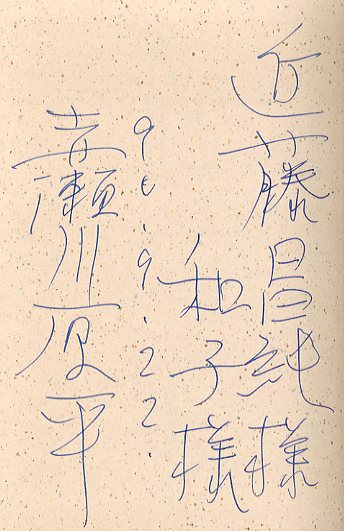 近藤昌純様
和子様
90.9.22.
赤瀬川原平